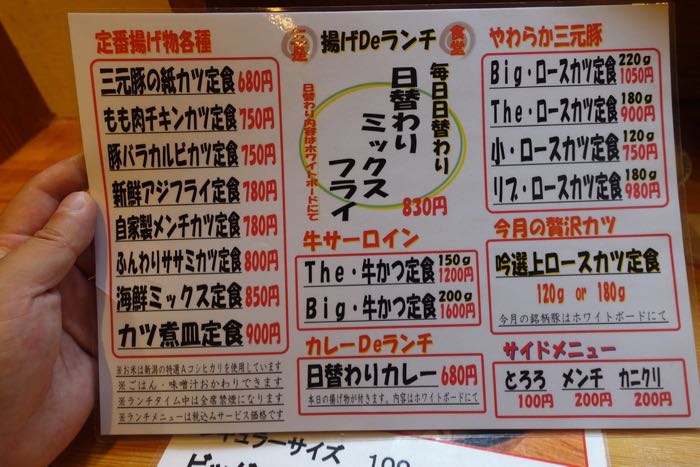 定番揚げ物各種
三元豚の紙カツ定食 680円
もも肉チキンカツ定食 750円
豚バラカルビカツ定食 750円
新鮮アジフライ定食 780円
自家製メンチカツ定食 780円
ふんわりササミカツ定食 800円
海鮮ミックス定食 850円
カツ煮皿定食 900円
※お米は新潟の特選Aコシヒカリを使用しています
※ごはん・味噌汁おかわりできます
※ランチタイム中は全席禁煙になります
※ランチメニューは税込みサービス価格です
揚げDeランチ
食堂
毎日日替わり
日替わり
ミックス
フライ
830円
日替わり内容はホワイトボードにて
牛サーロイン
The・牛かつ定食 150g 1200円
Big・牛かつ定食 200g 1600円
カレーDeランチ
日替わりカレー 680円
本日の揚げ物が付きます。内容はホワイトボードにて
やわらか三元豚
Big・ロースカツ定食 220g 1050円
The・ロースカツ定食 180g 900円
小・ロースカツ定食 120g 750円
リブ・ロースカツ定食 180g 980円
今月の贅沢カツ
吟選上ロースカツ定食
120g or 180g
今月の銘柄豚はホワイトボードにて
サイドメニュー
とろろ メンチ カニクリ
100円 200円 200円
ギュラーサイズ
100